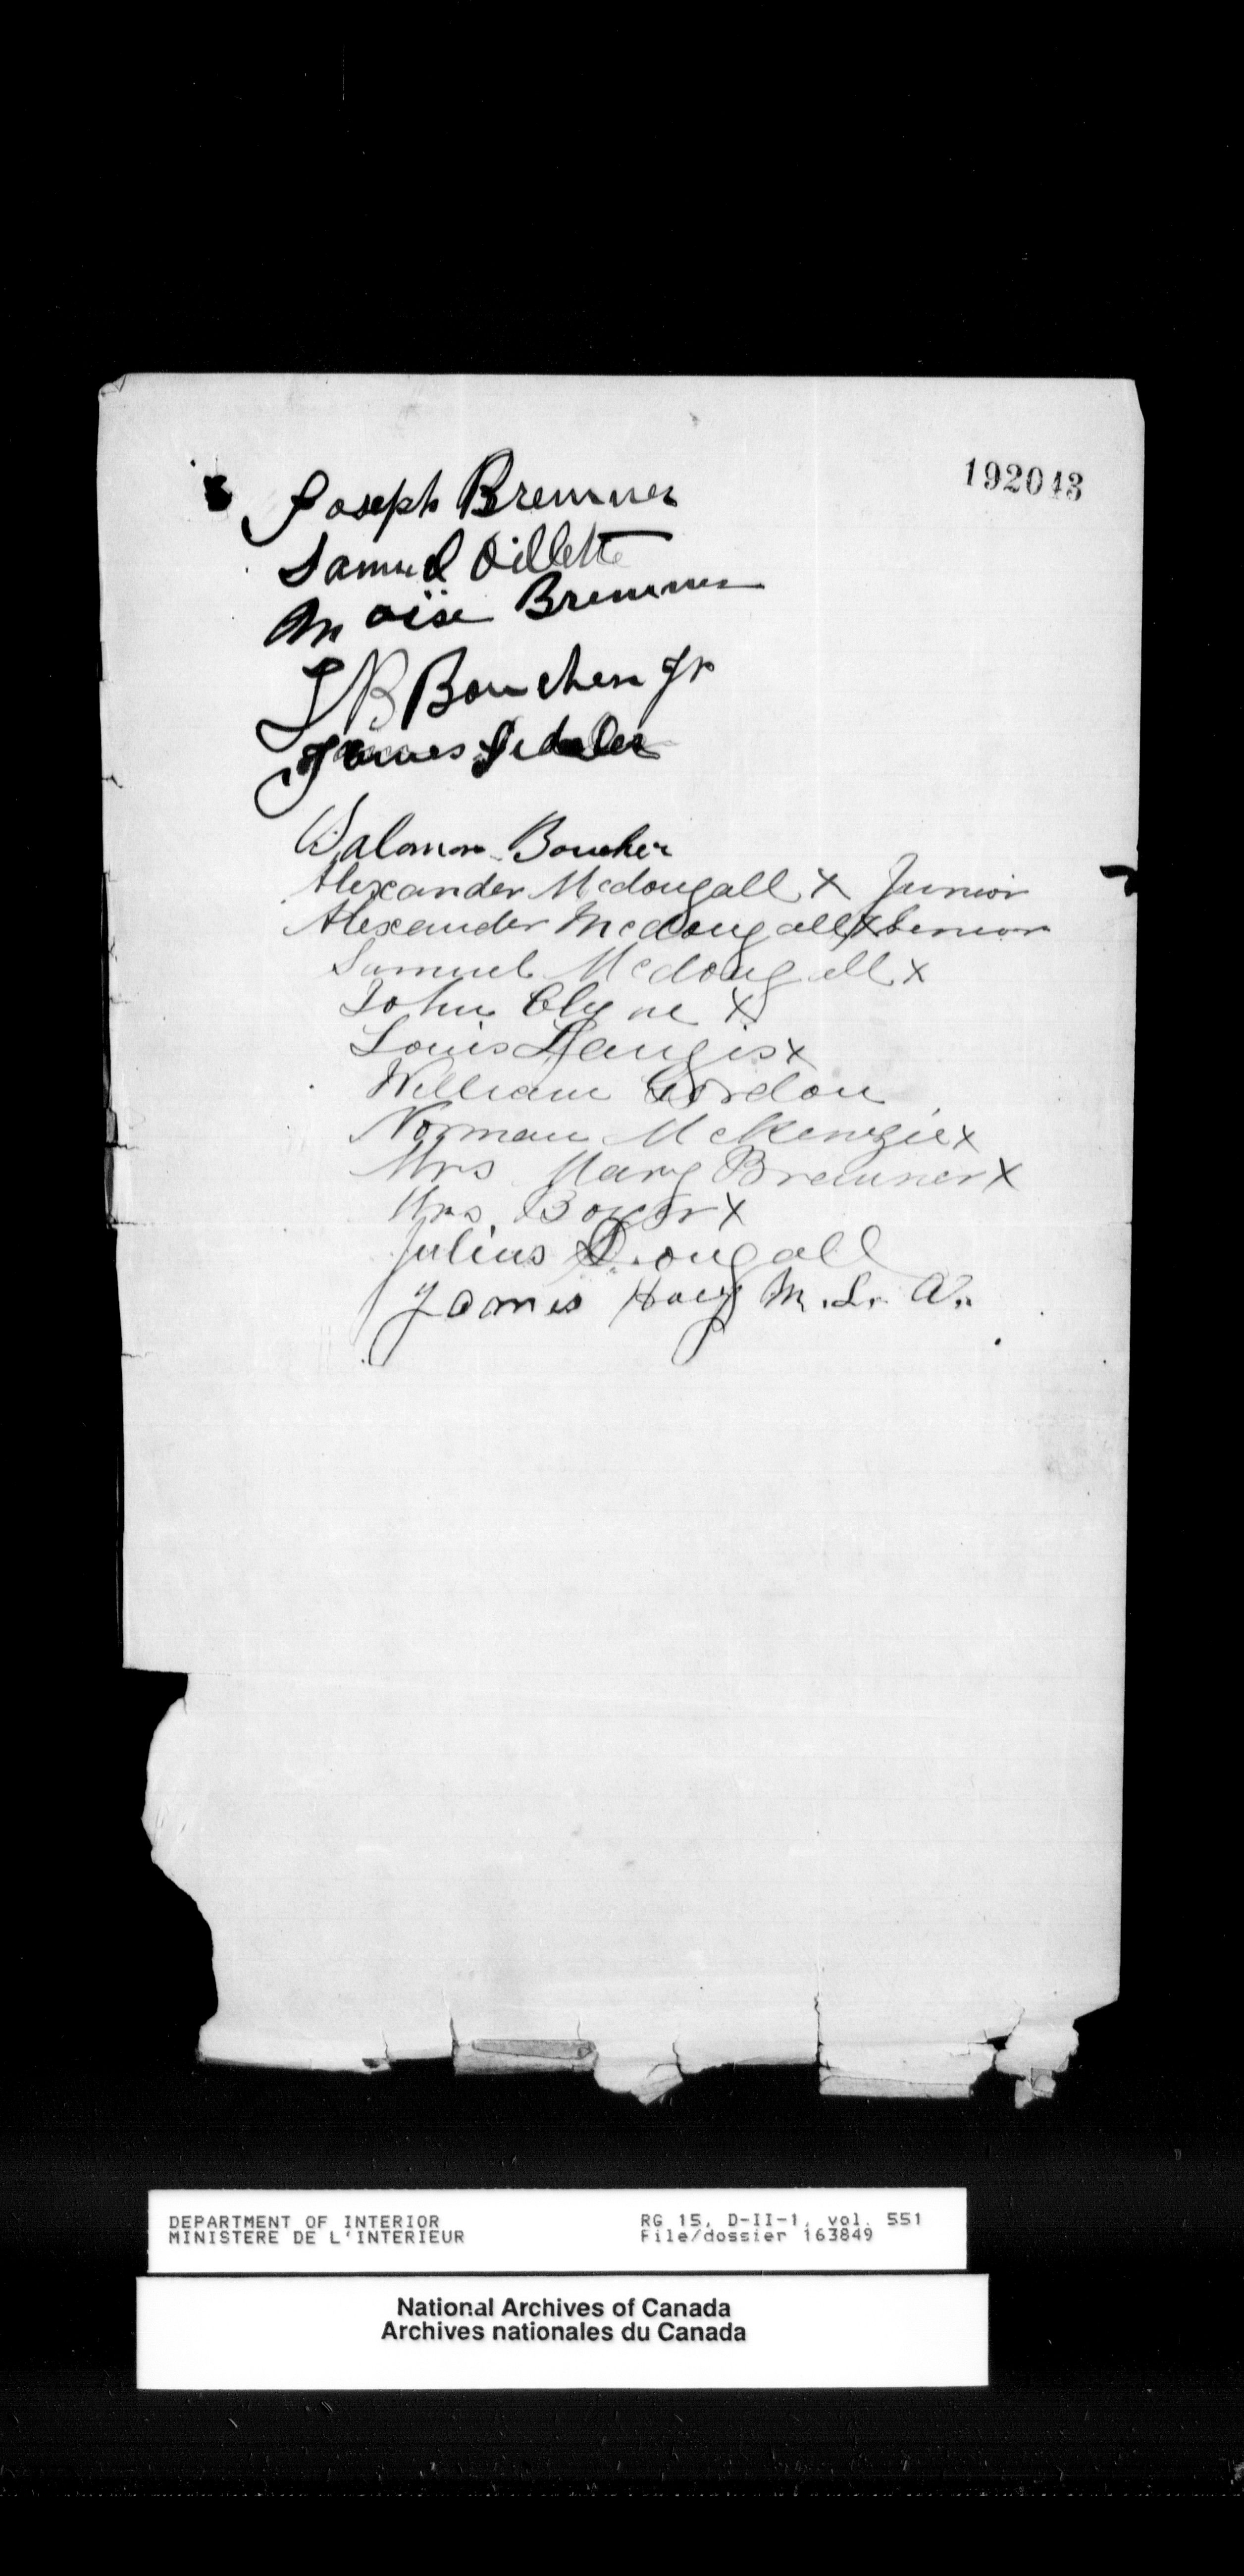 192043
Joseph Bremner
Samuel Oillette
Moïse Bremner
J B Boucher Jr
James
Salomon Boucher
Alexander Mcdougall X Junior
Alexander Mcdougall X Senior
Samuel Mcdougall X
John Clyne X
Louis Langis X
William Gordon
Norman McKenzie X
Mrs Mary Bremner X
Mrs Boyer X
Julius Dougall
James Hoey M. L. A.
DEPARTMENT OF INTERIOR
MINISTERE DE L'INTERIEUR
RG 15, D-II-1, vol. 551
File/dossier 163849
National Archives of Canada
Archives nationales du Canada